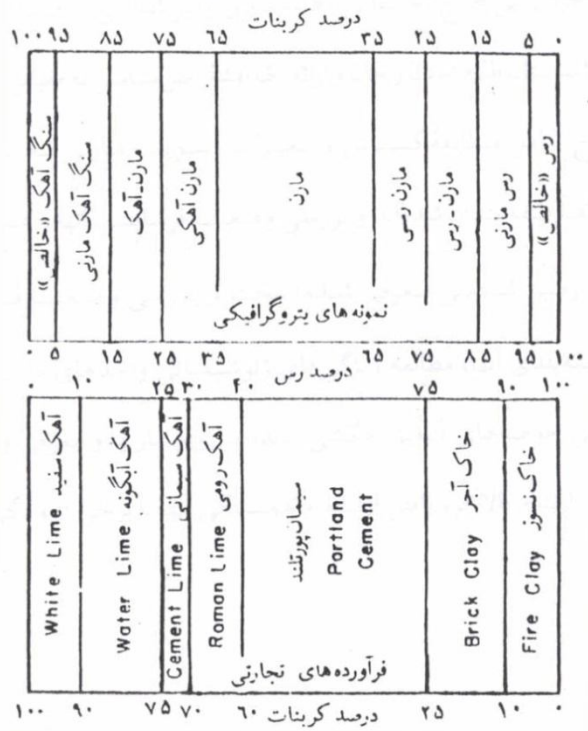 درصد کربنات
۱۰۰ ۹۵ ۸۵ ۷۵ ۶۵ ۳۵ ۲۵ ۱۵ ۵ ۰
سنگ آهک «خالص»
سنگ آهک مارنی
مارن-آهک
مارن آهکی
مارن
مارن رسی
مارن - رس
رس مارنی
رس «خالص»
نمونه‌های پتروگرافیکی
۰ ۵ ۱۵ ۲۵ ۳۵ ۶۵ ۷۵ ۸۵ ۹۵ ۱۰۰
درصد رس
۰ ۱۰ ۲۵ ۳۰ ۴۰ ۷۵ ۹۰ ۱۰۰
White Lime آهک سفید
Water Lime آهک آبگونه
Cement Lime آهک سیمانی
Roman Lime آهک رومی
سیمان پورتلند
Portland
Cement
Brick Clay خاک آجر
Fire Clay خاک نسوز
فرآورده‌های تجارتی
۱۰۰ ۹۰ ۷۵ ۷۰ ۶۰ ۲۵ ۱۰ ۰
درصد کربنات